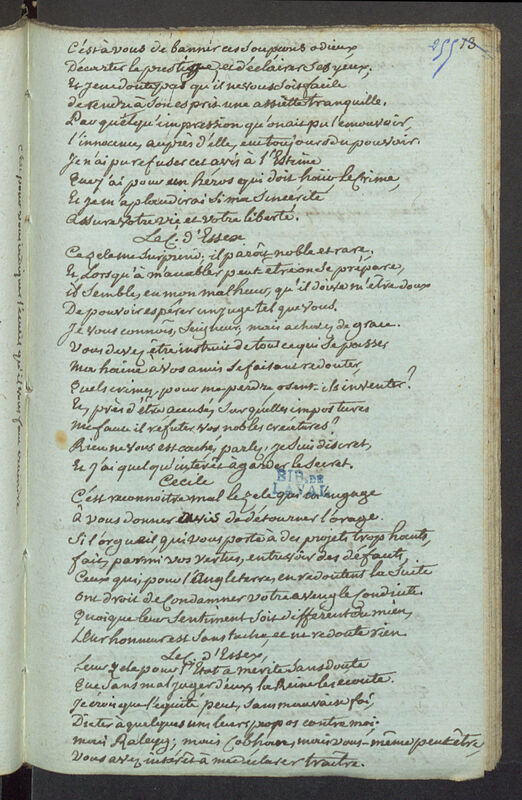 25573
C'est à vous de bannir ces soupçons odieux
D'écarter le prestige et d'éclairer ses yeux,
Et je ne doute pas qu'il ne vous soit facile
de rendre à son esprit une assiette tranquille.
Par quelqu'impression qu'on ait pu l'émouvoir,
l'innocence, auprès d'elle, eut toujours du pouvoir.
Je n'ai pu refuser cet avis à l'Estime
Que j'ai pour un héros qui doit haïr le Crime,
Et je m'applaudirai si ma Sincérité
assure votre vie et votre liberté.
Le C. d'Essex
Ce zele me Surprend; il paroît noble et rare.
Et Lorsqu'à m'accabler peut être on se prépare,
il Semble, en mon malheur, qu'il doive m'être doux
De pouvoir espérer un juge tel que vous.
Je vous connois, Seigneur, mais achevez de grace.
Vous devez être instruit de tout ce qui se passe;
Ma haine à vos amis se faisant redouter,
Quels crimes, pour me perdre osent-ils inventer?
Et, près d'être accusé, Sur quelles impostures
me faut il réfuter vos nobles créatures?
Rien ne vous est caché, parlez, je suis discret,
Et j'ai quelqu'intérêt à garder le Secret.
Cecile
BIB. DE LAVAL
C'est reconnoitre mal le zele qui m'engage
À vous donner avis de détourner l'orage.
Si l'orgueil qui vous porte à des projets trop hauts,
fait, parmi vos vertus, entrevoir des défauts,
Ceux qui, pour l'Angleterre, en redoutent la Suite
ont droit de Condamner votre aveugle Conduite.
Quoique leur Sentiment Soit différent du mien,
Leur honneur est Sans tache, et ne redoute rien.
Le C. d'Essex,
Leur zele pour l'Etat a mérité Sans doute
Que Sans mal juger d'eux, la Reine les écoute.
Je crois que l'équité peut, Sans mauvaise foi,
Dicter à quelques uns leurs propos contre moi.
mais Raleig; mais Cobham, mais vous-même peut être,
Vous avez intérêt à me déclarer traître.